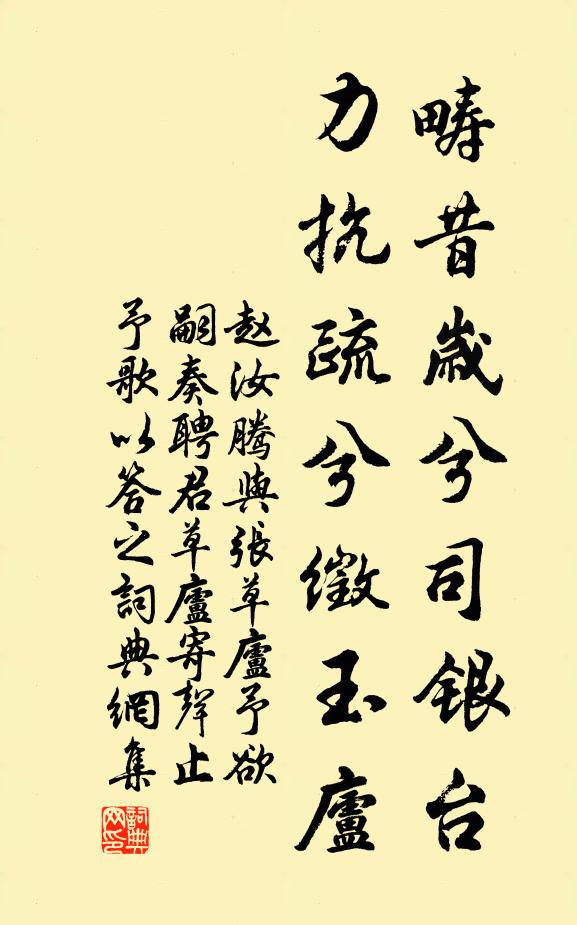 疇昔歲兮司銀台
力抗疏兮徵玉廬
赵汝騰與張草廬予欲
嗣奏聘君草廬寄聲止
予歌以答之詞典網集
詞典網印